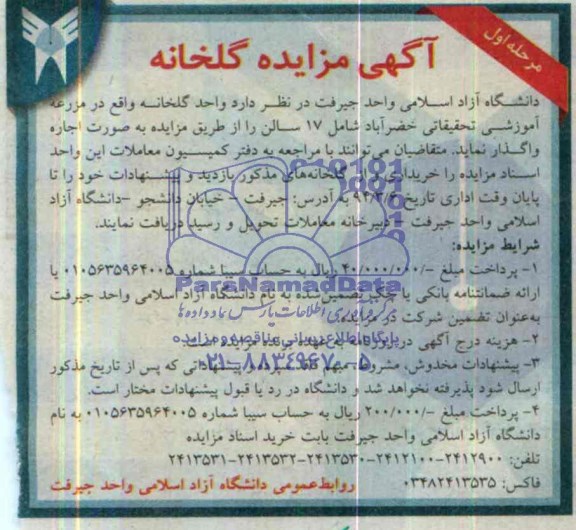 مرحله اول
آگهی مزایده گلخانه
دانشگاه آزاد اسلامی واحد جیرفت در نظر دارد واحد گلخانه واقع در مزرعه
آموزشی تحقیقاتی خضرآباد شامل ۱۷ سالن را از طریق مزایده به صورت اجاره
واگذار نماید. متقاضیان می‌توانند با مراجعه به دفتر کمیسیون معاملات این واحد
اسناد مزایده را خریداری و از گلخانه‌های مذکور بازدید و پیشنهادات خود را تا
پایان وقت اداری تاریخ ۹۴/۳/۳ به آدرس: جیرفت - خیابان دانشجو - دانشگاه آزاد
اسلامی واحد جیرفت - دبیرخانه معاملات تحویل و رسید دریافت نمایند.
شرایط مزایده:
۱- پرداخت مبلغ -/۴۰/۰۰۰/۰۰۰ ریال به حساب سیبا شماره ۰۱۰۵۶۳۵۹۶۴۰۰۵ یا
ارائه ضمانتنامه بانکی یا چک تضمین‌شده به نام دانشگاه آزاد اسلامی واحد جیرفت
به‌عنوان تضمین شرکت در مزایده
۲- هزینه درج آگهی در روزنامه به عهده برنده مزایده است.
۳- پیشنهادات مخدوش، مشروط، مبهم پیشنهاداتی که پس از تاریخ مذکور
ارسال شود پذیرفته نخواهد شد و دانشگاه در رد یا قبول پیشنهادات مختار است.
۴- پرداخت مبلغ -/۲۰۰/۰۰۰ ریال به حساب سیبا شماره ۰۱۰۵۶۳۵۹۶۴۰۰۵ به نام
دانشگاه آزاد اسلامی واحد جیرفت بابت خرید اسناد مزایده
تلفن: ۲۴۱۲۹۰۰-۲۴۱۲۱۰۰-۲۴۱۳۵۳۰-۲۴۱۳۵۳۲-۲۴۱۳۵۳۱
فاکس: ۰۳۴۸۲۴۱۳۵۳۵
روابط عمومی دانشگاه آزاد اسلامی واحد جیرفت
ParsNamadData
مرکز فرآوری اطلاعات پارس نماد داده‌ها
پایگاه اطلاع رسانی مناقصه و مزایده
۰۲۱-۸۸۳۴۹۶۷۰-۵